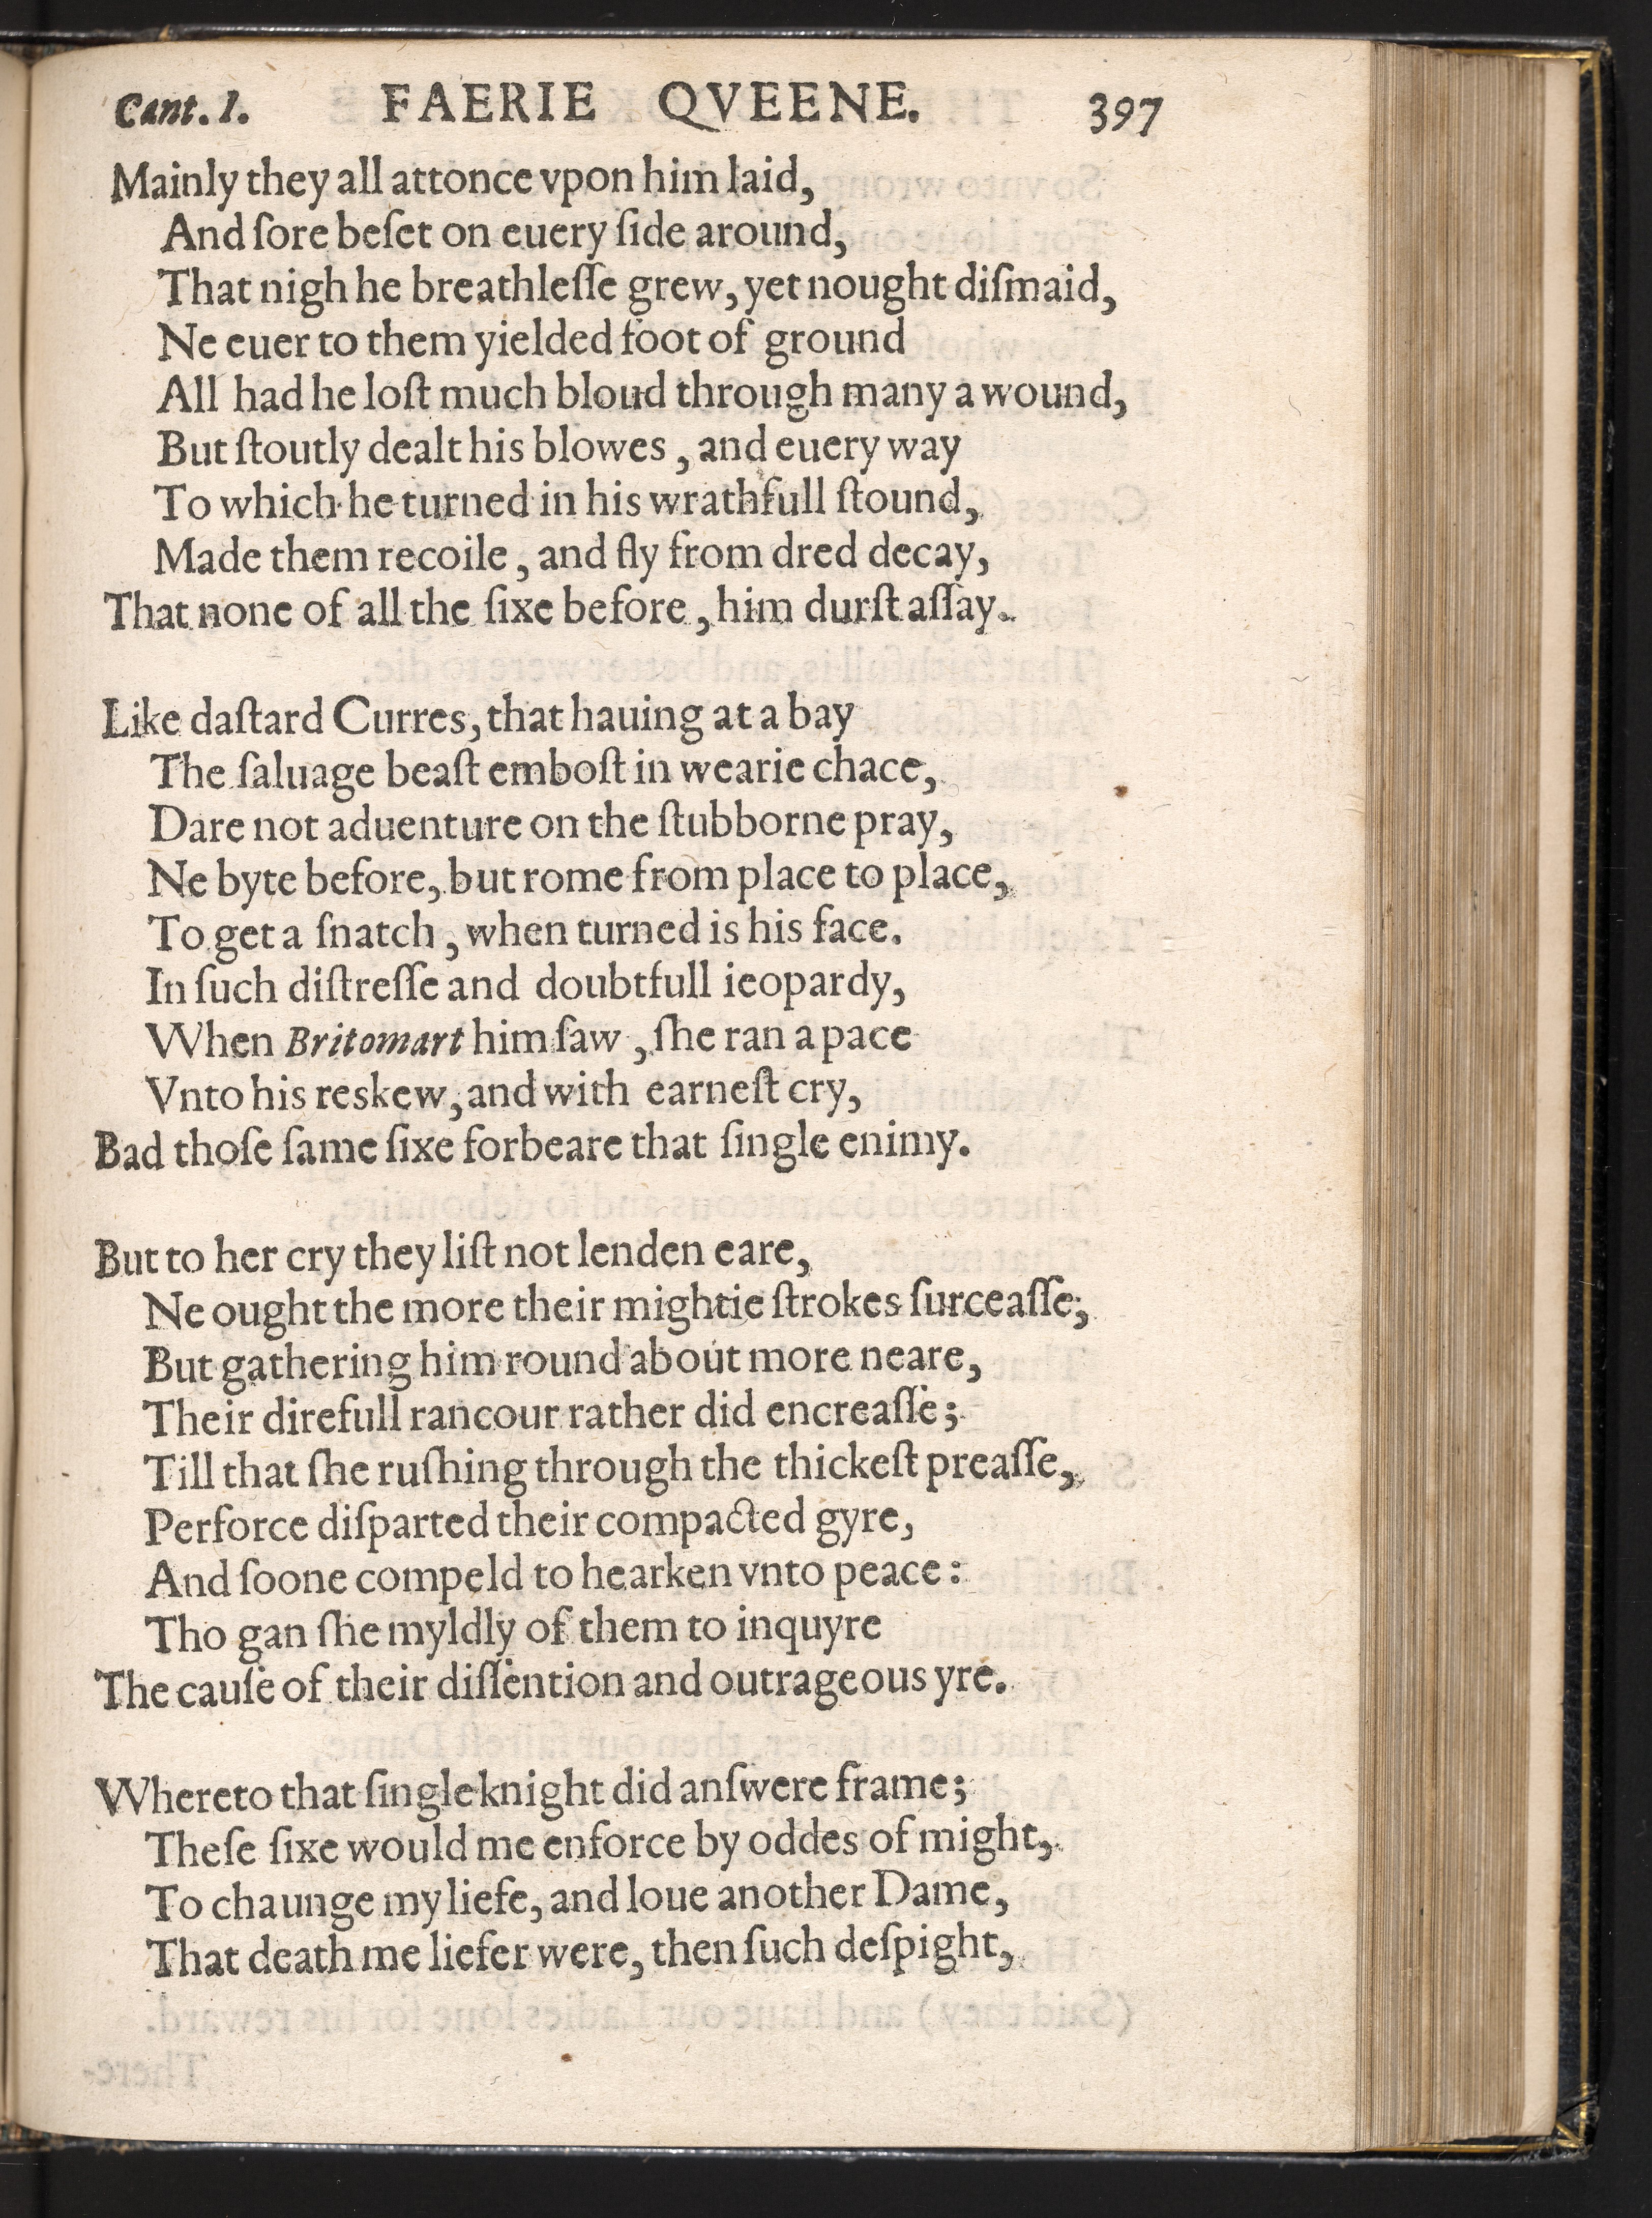 Cant. I. FAERIE QVEENE. 397
Mainly they all attonce vpon him laid,
And ſore beſet on euery ſide around,
That nigh he breathleſſe grew, yet nought diſmaid,
Ne euer to them yielded foot of ground
All had he loſt much bloud through many a wound,
But ſtoutly dealt his blowes, and euery way
To which he turned in his wrathfull ſtound,
Made them recoile, and fly from dred decay,
That none of all the ſixe before, him durſt aſſay.
Like daſtard Curres, that hauing at a bay
The ſaluage beaſt emboſt in wearie chace,
Dare not aduenture on the ſtubborne pray,
Ne byte before, but rome from place to place,
To get a ſnatch, when turned is his face.
In ſuch diſtreſſe and doubtfull ieopardy,
When Britomart him ſaw, ſhe ran a pace
Vnto his reskew, and with earneſt cry,
Bad thoſe ſame ſixe forbeare that ſingle enimy.
But to her cry they liſt not lenden eare,
Ne ought the more their mightie ſtrokes ſurceaſſe;
But gathering him round about more neare,
Their direfull rancour rather did encreaſſe;
Till that ſhe ruſhing through the thickeſt preaſſe,
Perforce diſparted their compacted gyre,
And ſoone compeld to hearken vnto peace:
Tho gan ſhe myldly of them to inquyre
The cauſe of their diſſention and outrageous yre.
Whereto that ſingle knight did anſwere frame;
Theſe ſixe would me enforce by oddes of might,
To chaunge my liefe, and loue another Dame,
That death me liefer were, then ſuch deſpight,